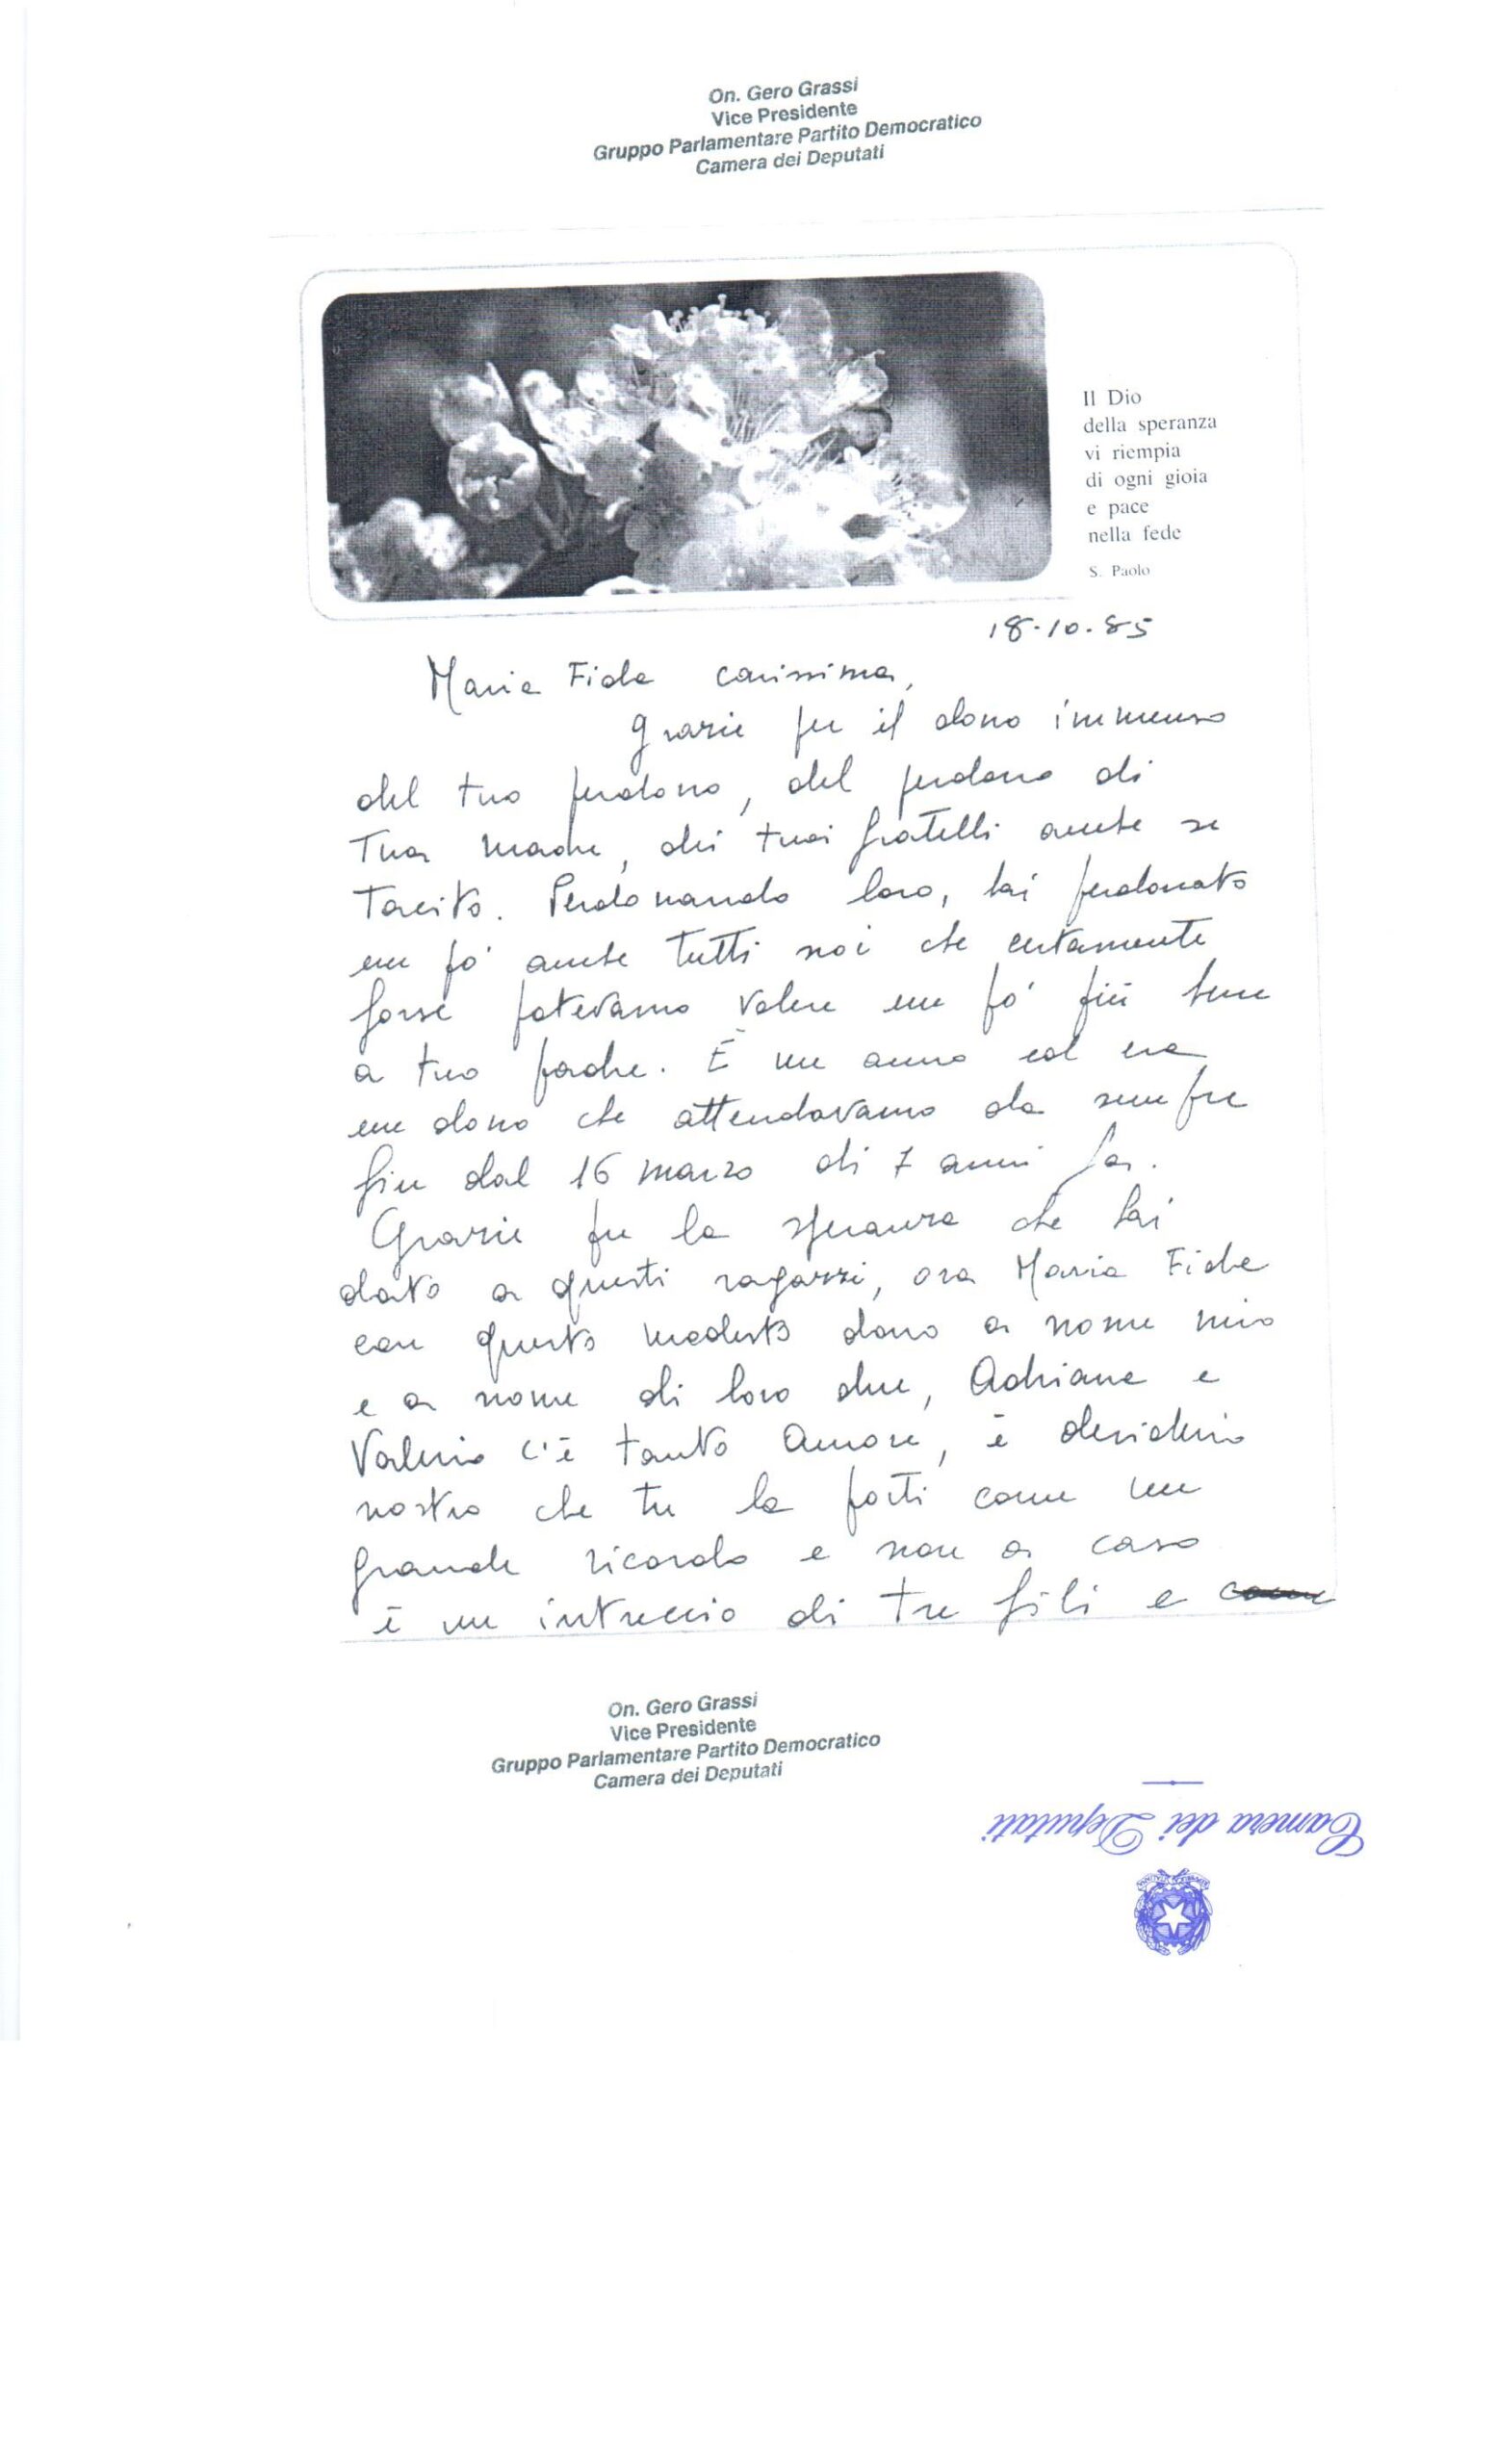 On. Gero Grassi
Vice Presidente
Gruppo Parlamentare Partito Democratico
Camera dei Deputati
Il Dio
della speranza
vi riempia
di ogni gioia
e pace
nella fede
S. Paolo
18-10-85
Maria Fida carissima,
Grazie per il dono immenso
del tuo perdono, del perdono di
Tua madre, dei tuoi fratelli anche se
Tacito. Perdonando loro, hai perdonato
un po' anche tutti noi che certamente
forse potevamo volere un po' più bene
a tuo padre. È un anno ed era
un dono che attendavamo da sempre
fin dal 16 marzo di 7 anni fa.
Grazie per la speranza che hai
dato a questi ragazzi, ora Maria Fida
con questo modesto dono a nome mio
e a nome di loro due, Adriana e
Valerio c'è tanto Amore, è desiderio
nostro che tu la porti come un
grande ricordo e non a caso
è un intreccio di tre fili e
On. Gero Grassi
Vice Presidente
Gruppo Parlamentare Partito Democratico
Camera dei Deputati
Camera dei Deputati